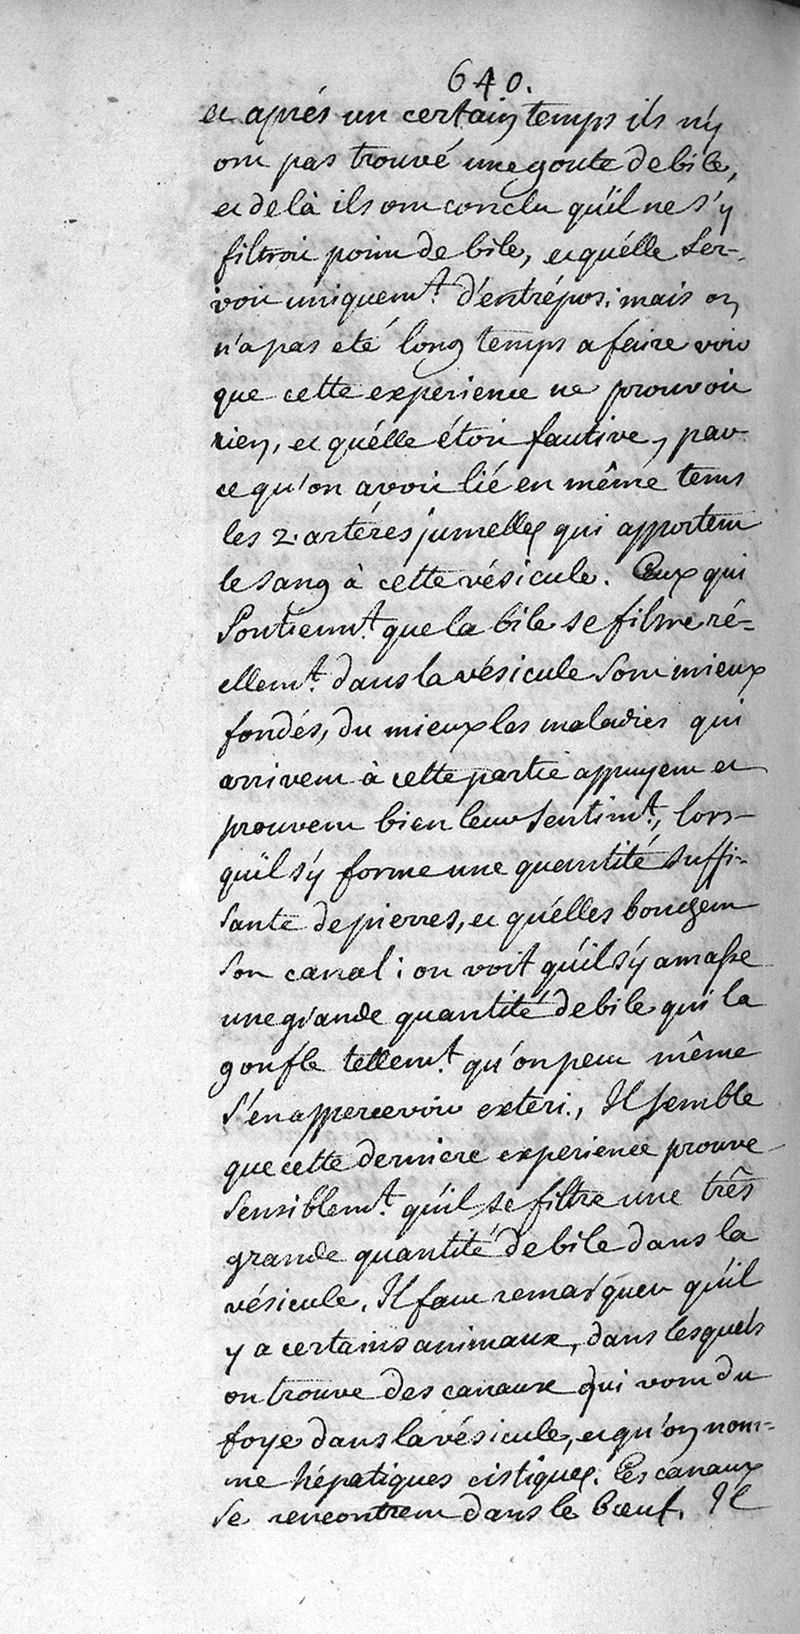 640.
et aprés un certain temps ils n'y
ont pas trouvé une goute de bile,
et de là ils ont conclu qu'il ne s'y
filtroit point de bile, et qu'élle ser-
voit uniquemt. d'entrépos: mais on
n'a pas eté long temps a faire voir
que cette experience ne prouvoit
rien, et qu'élle étoit fautive, par-
ce qu'on avoit lié en même tems
les 2. artéres jumelles qui apportent
le sang à cette vésicule. Ceux qui
soutiennt. que la bile se filtre ré=
ellemt. dans la vésicule sont mieux
fondés, du mieux les maladies qui
arrivent à cette partie appuyent et
prouvent bien leur sentimt., lors-
qu'il s'y forme une quantité suffi-
sante de pierres, et qu'élles bouchent
son canal: on voit qu'il s'y amasse
une grande quantité de bile qui la
gonfle tellemt. qu'on peut même
s'en appercevoir exteri., Il semble
que cette derniere experience prouve
sensiblemt. qu'il se filtre une três
grande quantité de bile dans la
vésicule. Il faut remarquer qu'il
y a certains animaux, dans lesquels
on trouve des canaux qui vont du
foye dans la vésicule, et qu'on nom-
me hépatiques cistiques. Ces canaux
se rencontrent dans le bœuf. Il